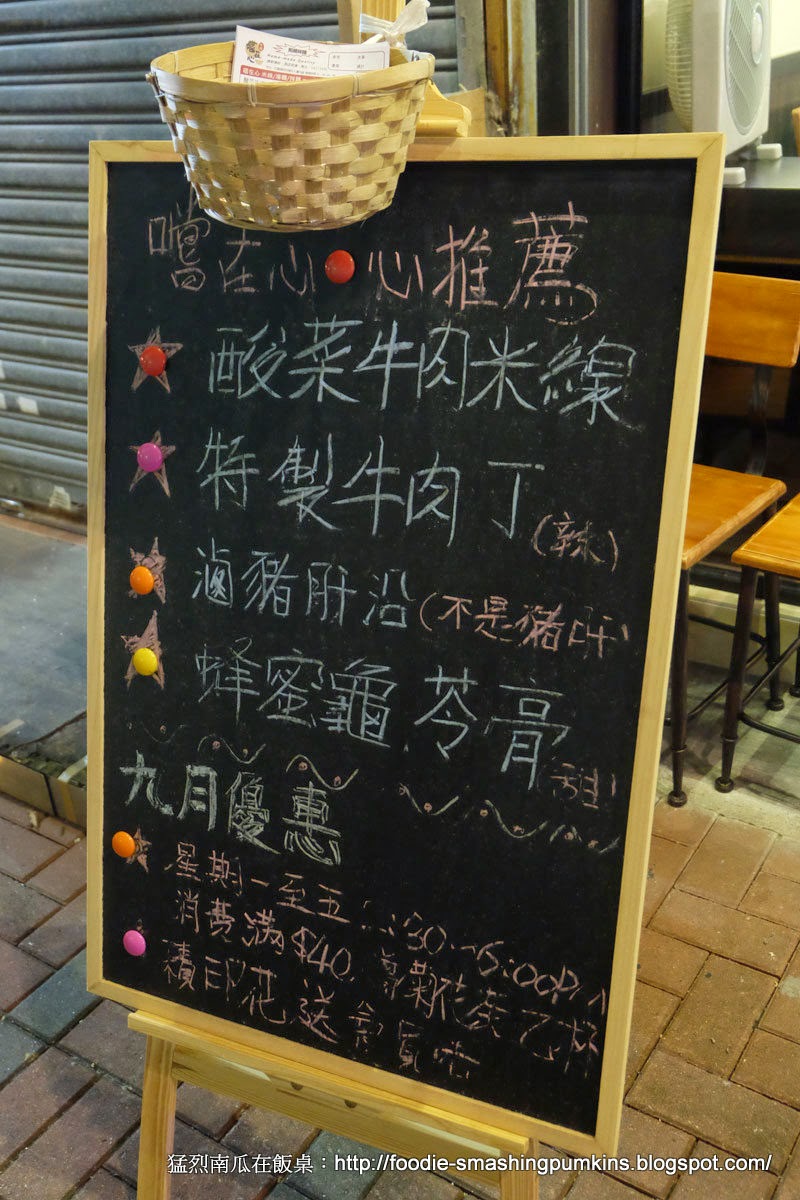 Home-made Quality
嚐在心 心推薦
酸菜牛肉米線
特製牛肉丁(辣)
滷豬肝沿(不是豬肝)
蜂蜜龜苓膏(甜)
九月優惠
星期一至五 :30-6:00P
消費滿$40 花茶乙杯
積印花送
猛烈南瓜在飯桌:http://foodie-smashingpumkins.blogspot.com/